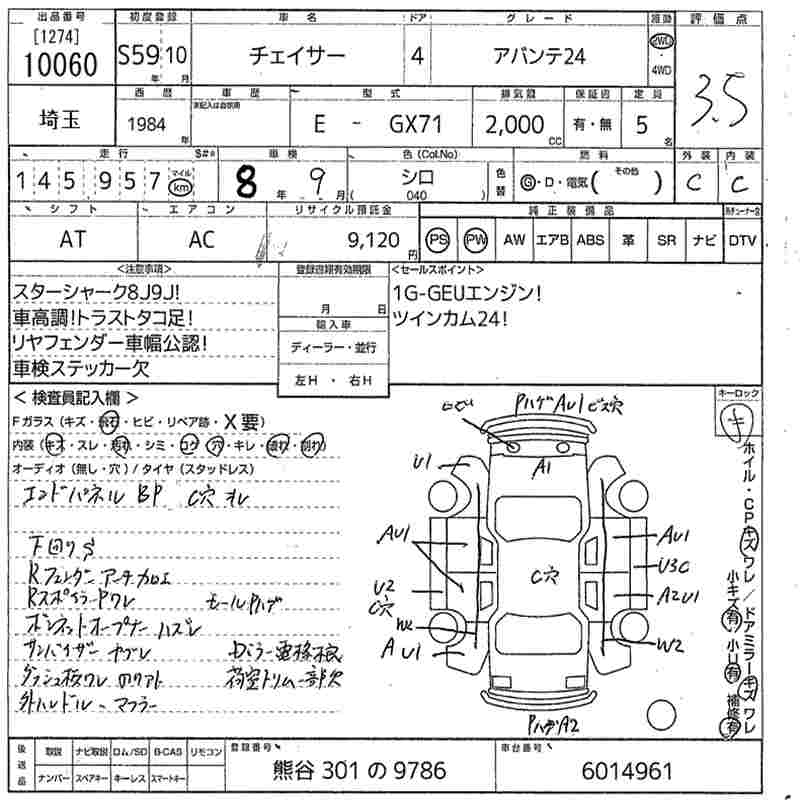 出品番号 初度登録 車名 ドア グレード 駆動 評価点
[1274]
10060 S59 10 チェイサー 4 アバンテ24 2WD・4WD 3.5
年 月
西暦 車歴 型式 排気量 保証書 定員
未記入は自家用
埼玉 1984年 E - GX71 2,000CC 有・無 5名
走行 S#* 車検 色(Col.No) 燃料 外装 内装
145957 マイル km 8年9月 シロ (040) 色替 G・D・電気( その他 ) C C
シフト エアコン リサイクル預託金 純正装備品
AT AC 9,120円 PS PW AW エアB ABS 革 SR ナビ DTV
<注意事項> 登録書類有効期限 <セールスポイント>
スターシャーク8J9J! 1G-GEUエンジン!
車高調!トラストタコ足! 月 日 ツインカム24!
輸入車
リヤフェンダー車幅公認! ディーラー・並行
車検ステッカー欠 左H・右H
<検査員記入欄> キーロック
Fガラス(キズ・飛石・ヒビ・リペア跡・X要) キ
内装(キズ・スレ・汚れ・シミ・コゲ・穴・キレ・壊れ・割れ)
オーディオ(無し・穴)/タイヤ(スタッドレス)
エンドパネル BP C穴 オレ
下回りS
Rフェンダーアーチ加工
RスポイラーPワレ モールPハゲ
ボンネットオープナーハズレ
サンバイザーヤブレ Dミラー電格不良
ダッシュ板ワレ のりアト 荷室トリム一部欠
外ハンドル-マフラー
PハゲAU1ビス穴
A1
U1
AU1 AU1
C穴 U3C
U2 C穴 A2U1
W2 W2
AU1
PハゲA2
ホイル・CPキズワレ/ドアミラーキズワレ
小キズ有 小U有 補修有
後送品 取説 ナビ取説 ロム/SD B-CAS リモコン 登録番号 車台番号
ナンバー スペアキー キーレス スマートキー 熊谷 301 の 9786 6014961